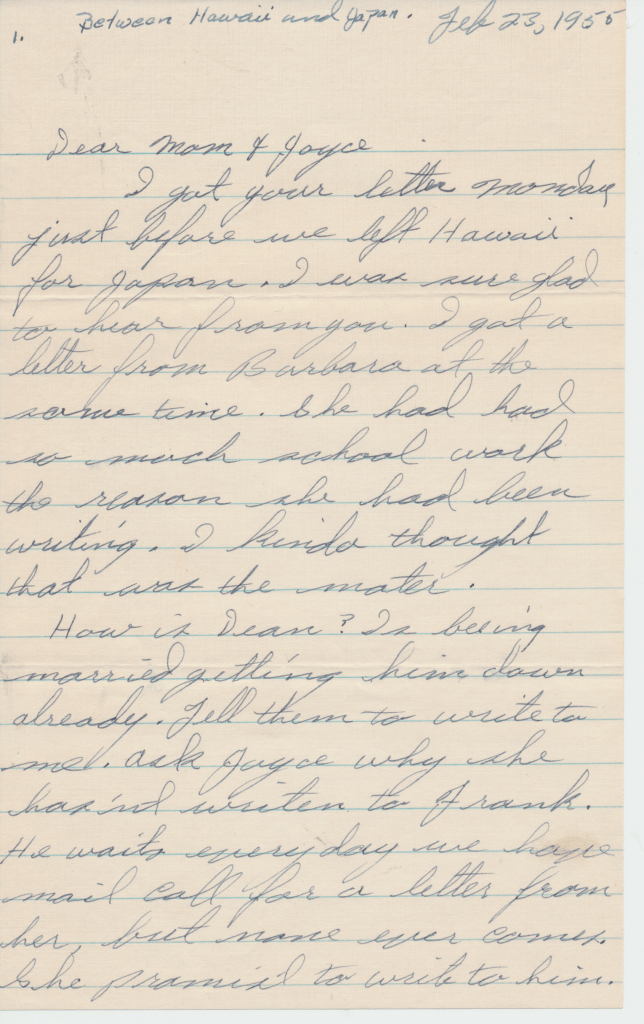 1. Between Hawaii and Japan. Feb 23, 1955
Dear Mom & Joyce
I got your letter Monday
just before we left Hawaii
for Japan. I was sure glad
to hear from you. I got a
letter from Barbara at the
same time. She had had
so much school work
the reason she had been
writing. I kinda thought
that was the mater.
How is Dean? Is beeing
married getting him down
already. Tell them to write to
me. ask Joyce why she
hasn't writen to Frank.
He waits everyday we have
mail call for a letter from
her, but none ever comes.
She promisd to write to him.